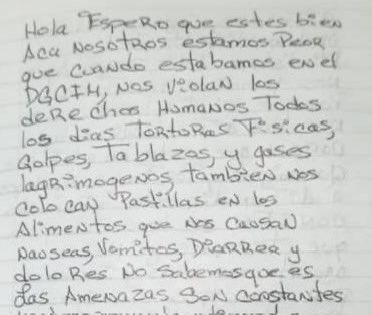 Hola Espero que estes bien
Aca Nosotros estamos Peor
que cuando estabamos en el
DGCIM, Nos Violan los
derechos Humanos Todos
los dias Torturas Fisicas,
Golpes, Tablazos, y gases
lagrimogenos, tambien nos
colocan Pastillas en los
Alimentos que nos causan
Nauseas, Vomitos, Diarrea y
dolores No Sabemos que es
las Amenazas Son constantes